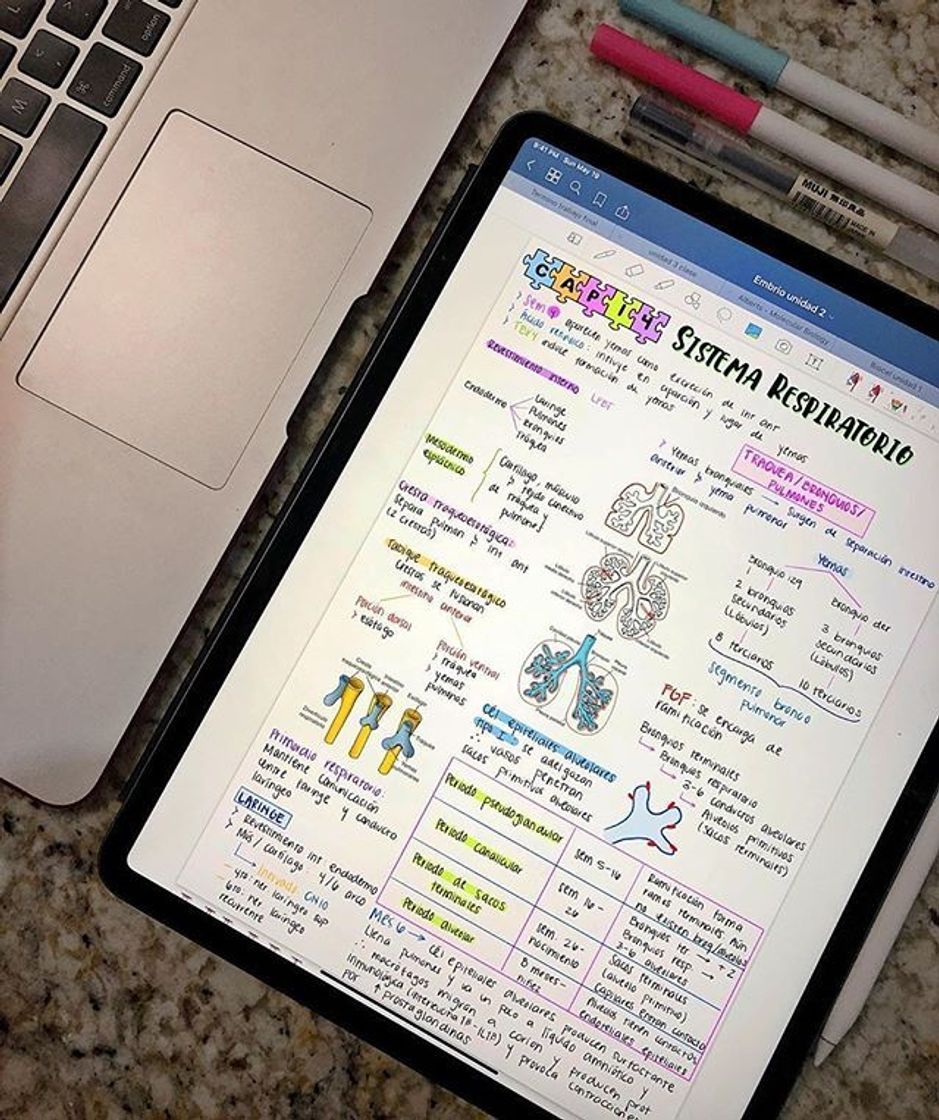 option
command
MUJI 無印良品
MADE IN
9:41 PM Sun May 19
Embrio unidad 2
Termino trabajo final
unidad 3 clase
Alberts - Molecular Biology
Biocel unidad 1
CAPI 14
SISTEMA RESPIRATORIO
> Sem 4 aparecen yemas como excreción de int ant
> Ácido retinoico: influye en aparición y lugar de yemas
> TBX4 induce formación de yemas
Revestimiento interno
Endodermo
Laringe
Pulmones
Bronquios
Tráquea
Mesodermo
esplácnico
Cartílago, músculo
y tejido conectivo
de tráquea y
pulmones
Cresta traqueoesofágica:
Separa pulmón y int ant
(2 crestas)
Tabique traqueoesofágico
Crestas se fusionan
intestino anterior
Porción dorsal
> esófago
Porción ventral
> tráquea
> yemas
pulmonas
Primordio respiratorio:
Mantiene comunicación
entre laringe y conducto
laríngeo
LARINGE
> Revestimiento int endodermo
> Mús / cartílago: 4/6 arco
4to: ner laríngeo sup
6to: ner laríngeo
recurrente
TRAQUEA/BRONQUIOS/
PULMONES
> Yemas bronquiales → surgen de separación intestino
anterior y yema pulmonar
Bronquio izquierdo
Yemas
Bronquio izq
2 bronquios
secundarios
(Lóbulos)
8 terciarios
Bronquio der
3 bronquios
secundarios
(Lóbulos)
10 terciarios
segmento bronco
pulmonar
FGF: se encarga de
ramificación
Bronquios terminales
Bronquios respiratorio
3-6 conductos alveolares
Alveolos primitivos
(sacos terminales)
Cél epiteliales alveolares
tipo I se adelgazan
∴ vasos penetran
sacos primitivos alveolares
Periodo pseudoglandular
Sem 5-16
Ramificación forma
ramos terminales. Aún
no existen
Periodo canalicular
Sem 16-
26
Bronquios ter → + 2
Bronquios resp →
3-6 alveolares
Periodo de sacos
terminales
Sem. 26-
nacimiento
Sacos terminales
(alveolo primitivo)
Capilares entran contacto
Periodo alveolar
8 meses-
niñez
Alveolos tienen contactos
endoteliales epiteliales
Mes 6 → Cél epiteliales alveolares producen surfactante
Llena pulmones y va un poco a líquido amniótico
∴ macrófagos migran a corion y producen prot
inmunológica (interleucina 1B - IL1B) y provoca contracciones
por ↑ prostaglandinas